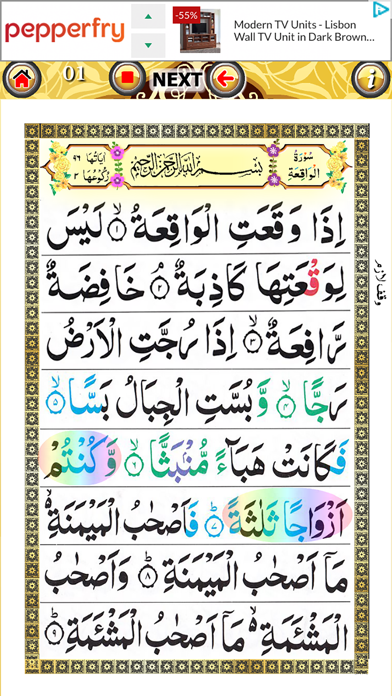 pepperfry
-55%
Modern TV Units - Lisbon
Wall TV Unit in Dark Brown...
01
NEXT
i
سُوْرَةُ الْوَاقِعَةِ
بِسْمِ اللهِ الرَّحْمٰنِ الرَّحِيْمِ
اٰيَاتُهَا ٩٦
رُكُوْعُهَا ٣
اِذَا وَقَعَتِ الْوَاقِعَةُ ۙ ١ لَيْسَ
لِوَقْعَتِهَا كَاذِبَةٌ ۘ ٢ خَافِضَةٌ
وقف لازم
رَّافِعَةٌ ۙ ٣ اِذَا رُجَّتِ الْاَرْضُ
رَجًّا ۙ ٤ وَّبُسَّتِ الْجِبَالُ بَسًّا ۙ ٥
فَكَانَتْ هَبَآءً مُّنْۢبَثًّا ۙ ٦ وَّكُنْتُمْ
اَزْوَاجًا ثَلٰثَةً ؕ ٧ فَاَصْحٰبُ الْمَيْمَنَةِ ۙ
مَاۤ اَصْحٰبُ الْمَيْمَنَةِ ؕ ٨ وَاَصْحٰبُ
الْمَشْئَمَةِ ۙ مَاۤ اَصْحٰبُ الْمَشْئَمَةِ ؕ ٩